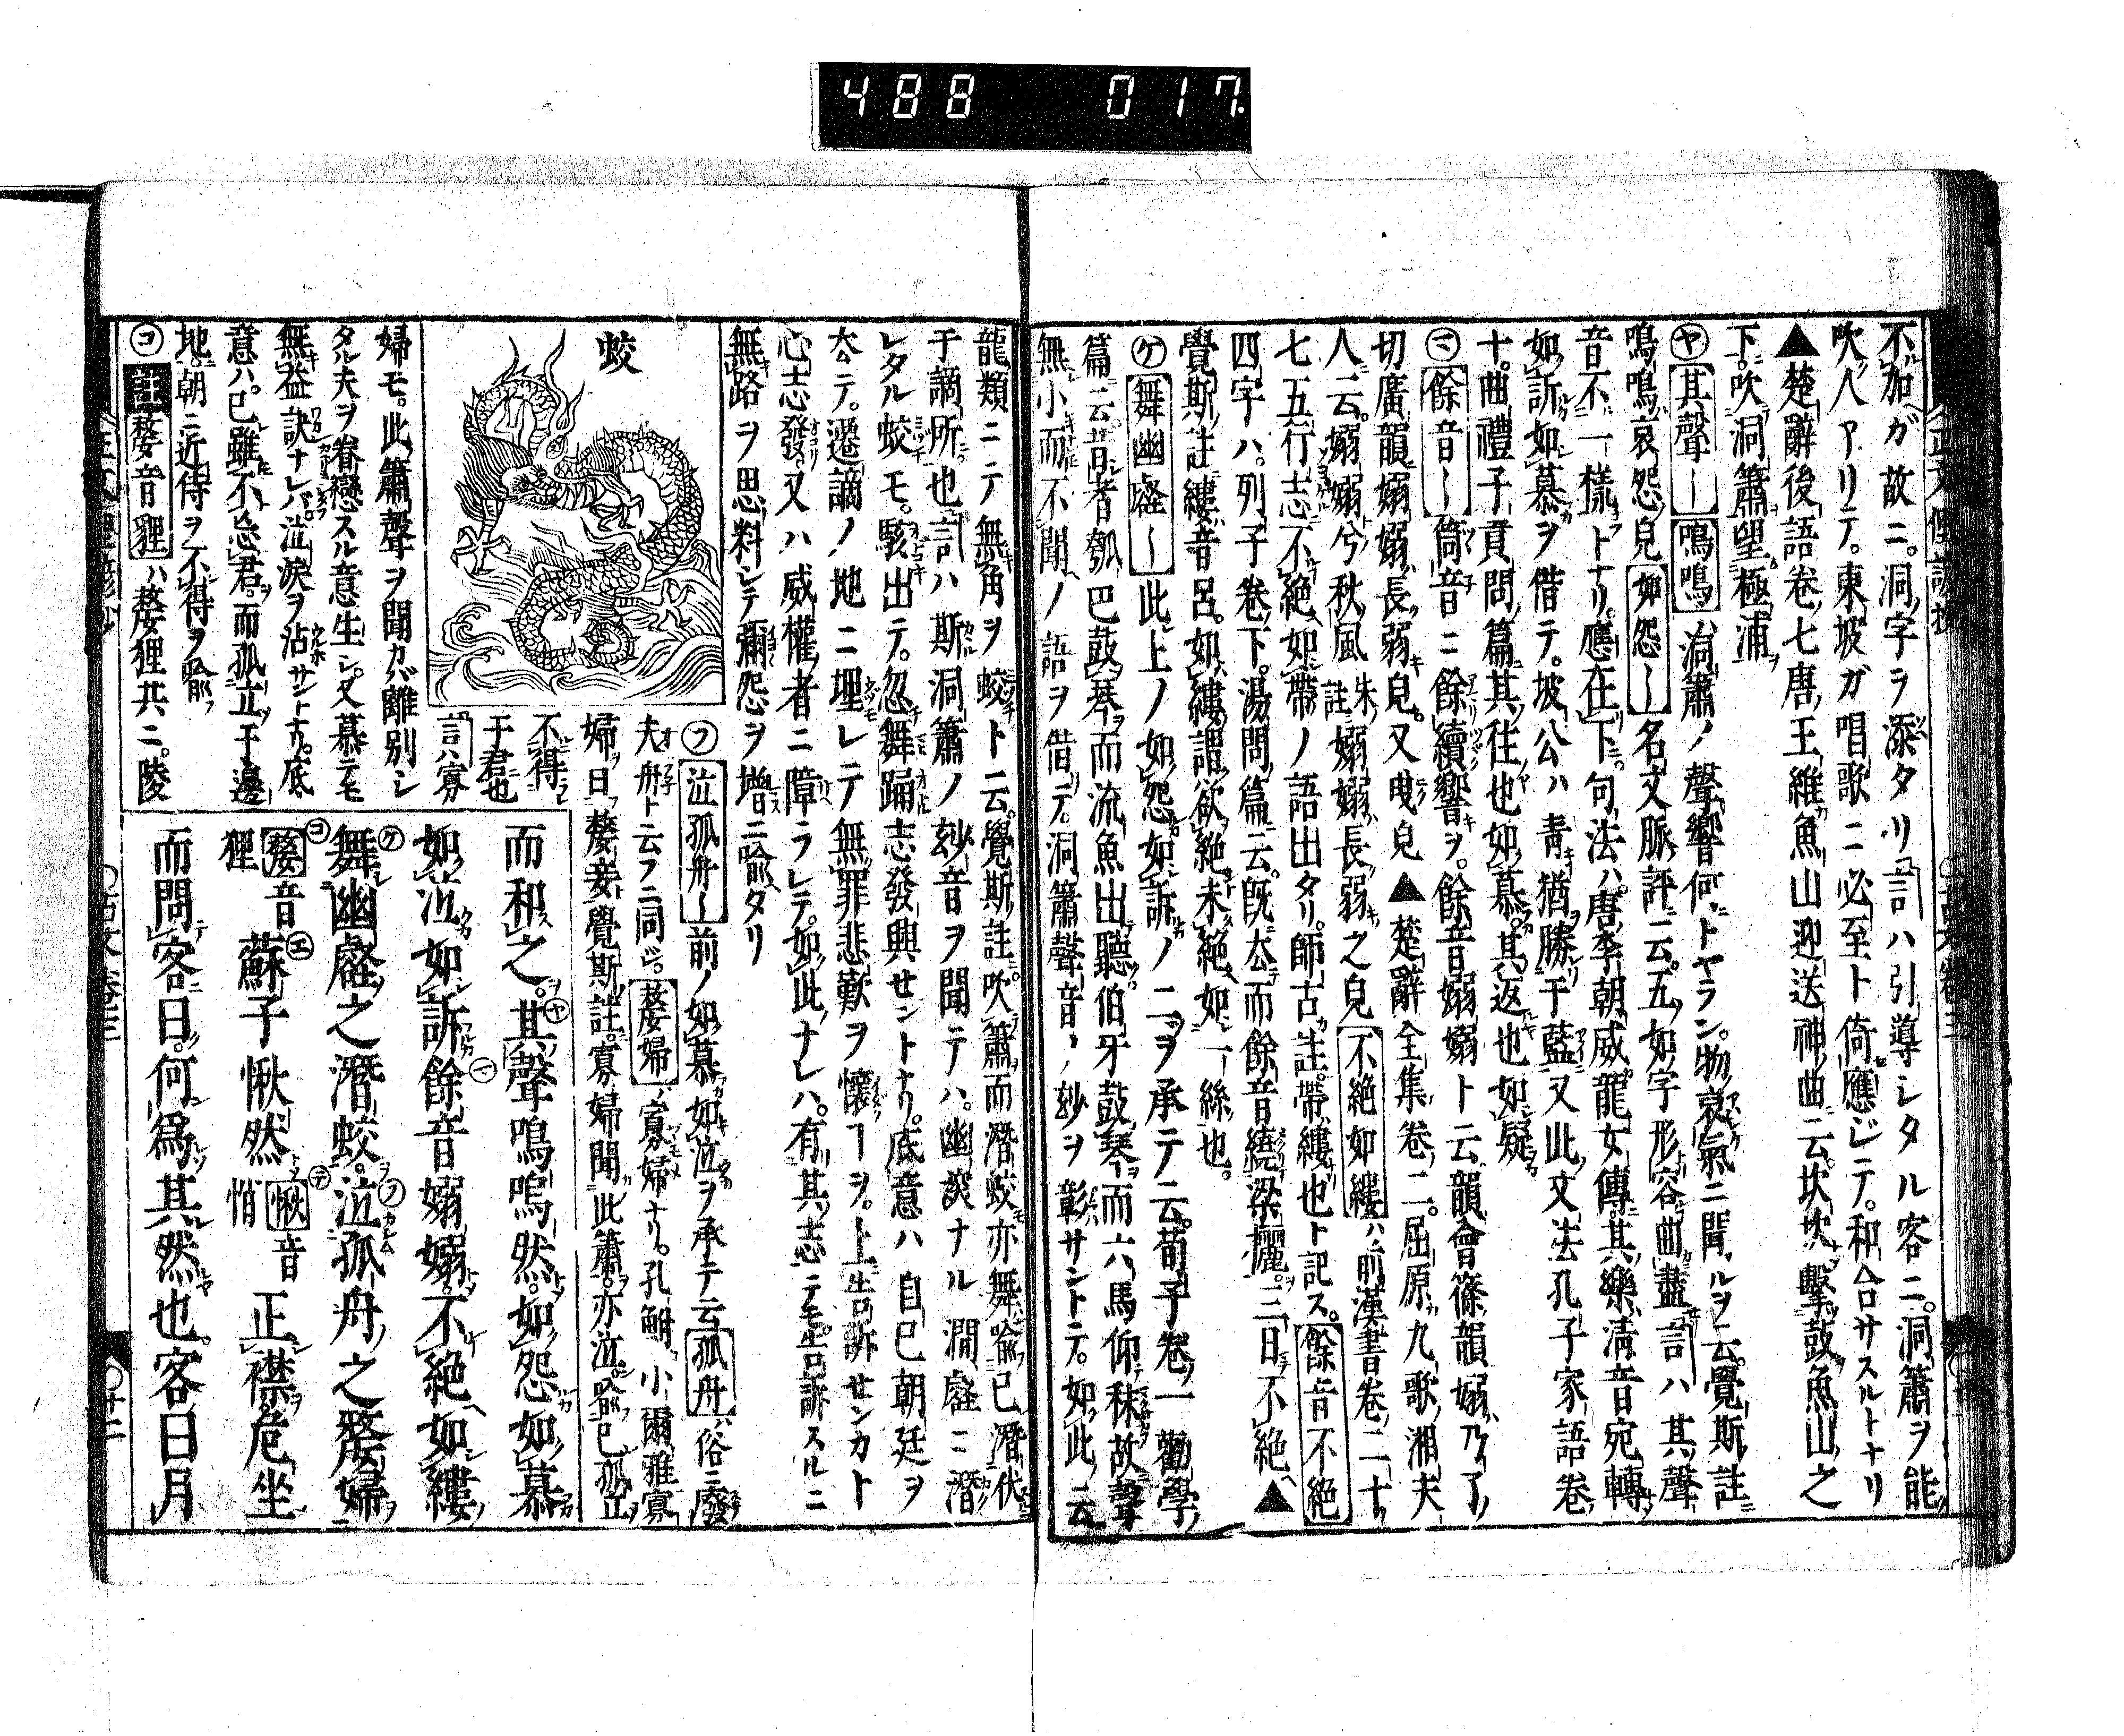 488 017
不加ガ故ニ。洞ノ字ヲ添タリ言ハ引導シタル客ニ。洞簫ヲ能
吹人アリテ。東坡ガ唱歌ニ必至ト倚應ジテ。和合サスルトナリ
▲楚辭後語卷七唐王維魚山迎送神曲ニ云。坎坎擊鼓魚山之
下。吹洞簫望極浦
ヤ其聲〡嗚嗚ハ洞簫ノ聲響何トヤラン。物哀氣ニ聞ルヲ云。覺斯註
嗚嗚哀怨皃如怨〡名文脈評ニ云。五如字形容曲盡言ハ其聲
音不一樣トナリ。應在下。句法ハ。唐李朝威龍女傳。其樂淸音宛轉
如訴如慕ヲ借テ。坡公ハ靑猶勝于藍又此文法孔子家語卷
十。曲禮子貢問篇其往也如慕。其返也如疑
マ餘音〡筒音ニ餘續響ヲ。餘音嫋嫋ト云。韻會篠韻嫋ハ乃了
切廣韻嫋嫋長弱皃。又曳皃▲楚辭全集卷二。屈原九歌湘夫
人云。嫋嫋兮秋風朱註嫋嫋長弱之皃不絕如縷ハ前漢書卷二十
七五行志不絕如帶ノ語出タリ。師古註。帶縷也ト記ス。餘音不絕
四字ハ。列子卷下。湯問篇云。旣去而餘音繞梁欐。三日不絕▲
覺斯註縷音呂。如縷謂欲絕未絕如一絲也。
ケ舞幽壑〡此上ノ如怨如訴ノ二ヲ承テ云。荀子卷一勸學
篇云昔者瓠巴鼓琴而流魚出聽伯牙鼓琴而六馬仰秣故聲
無小而不聞ノ語ヲ借テ。洞簫聲音ノ玅ヲ彰サントテ。如此云
龍類ニテ無角ヲ蛟ト云。覺斯註吹簫而潛蛟亦舞喩己潛伏
于謫所也言ハ斯洞簫ノ玅音ヲ聞テハ。幽深ナル澗壑ニ潛
レタル蛟モ。駭出テ。忽舞踊志發興セントナリ。底意ハ自己朝廷ヲ
去テ。遷謫ノ地ニ埋レテ無罪悲歎ヲ懷ヿヲ。上告訴センカト
心志發。又ハ威權者ニ障ラレテ。如此ナレハ。有其志テモ。告訴スルニ
無路ヲ思料シテ彌怨ヲ增ニ喩タリ
蛟
フ泣孤舟〡前ノ如慕如泣ヲ承テ云孤舟ハ俗ニ廢
夫舟ト云フニ同ジ。嫠婦ハ寡婦ナリ。孔鮒小爾雅寡
婦曰嫠妾覺斯註。寡婦聞此簫。亦泣。喩己孤立
不得
于君也
言ハ寡
婦モ。此簫聲ヲ聞カバ離別シ
タル夫ヲ眷戀スル意生シ。又慕テモ
無益訣ナレバ。泣淚ヲ沾サントナリ。底
意ハ。己雖不忘君。而孤立于邊
地。朝ニ近侍ヲ不得ヲ喩フ
コ註嫠音狸ハ嫠狸共ニ。陵
而和之。其聲嗚嗚然。如怨如慕
如泣如訴餘音嫋嫋。不絕如縷
舞幽壑之潛蛟。泣孤舟之嫠婦
嫠音狸蘇子愀然愀音悄正襟危坐
而問客曰。何爲其然也。客曰月